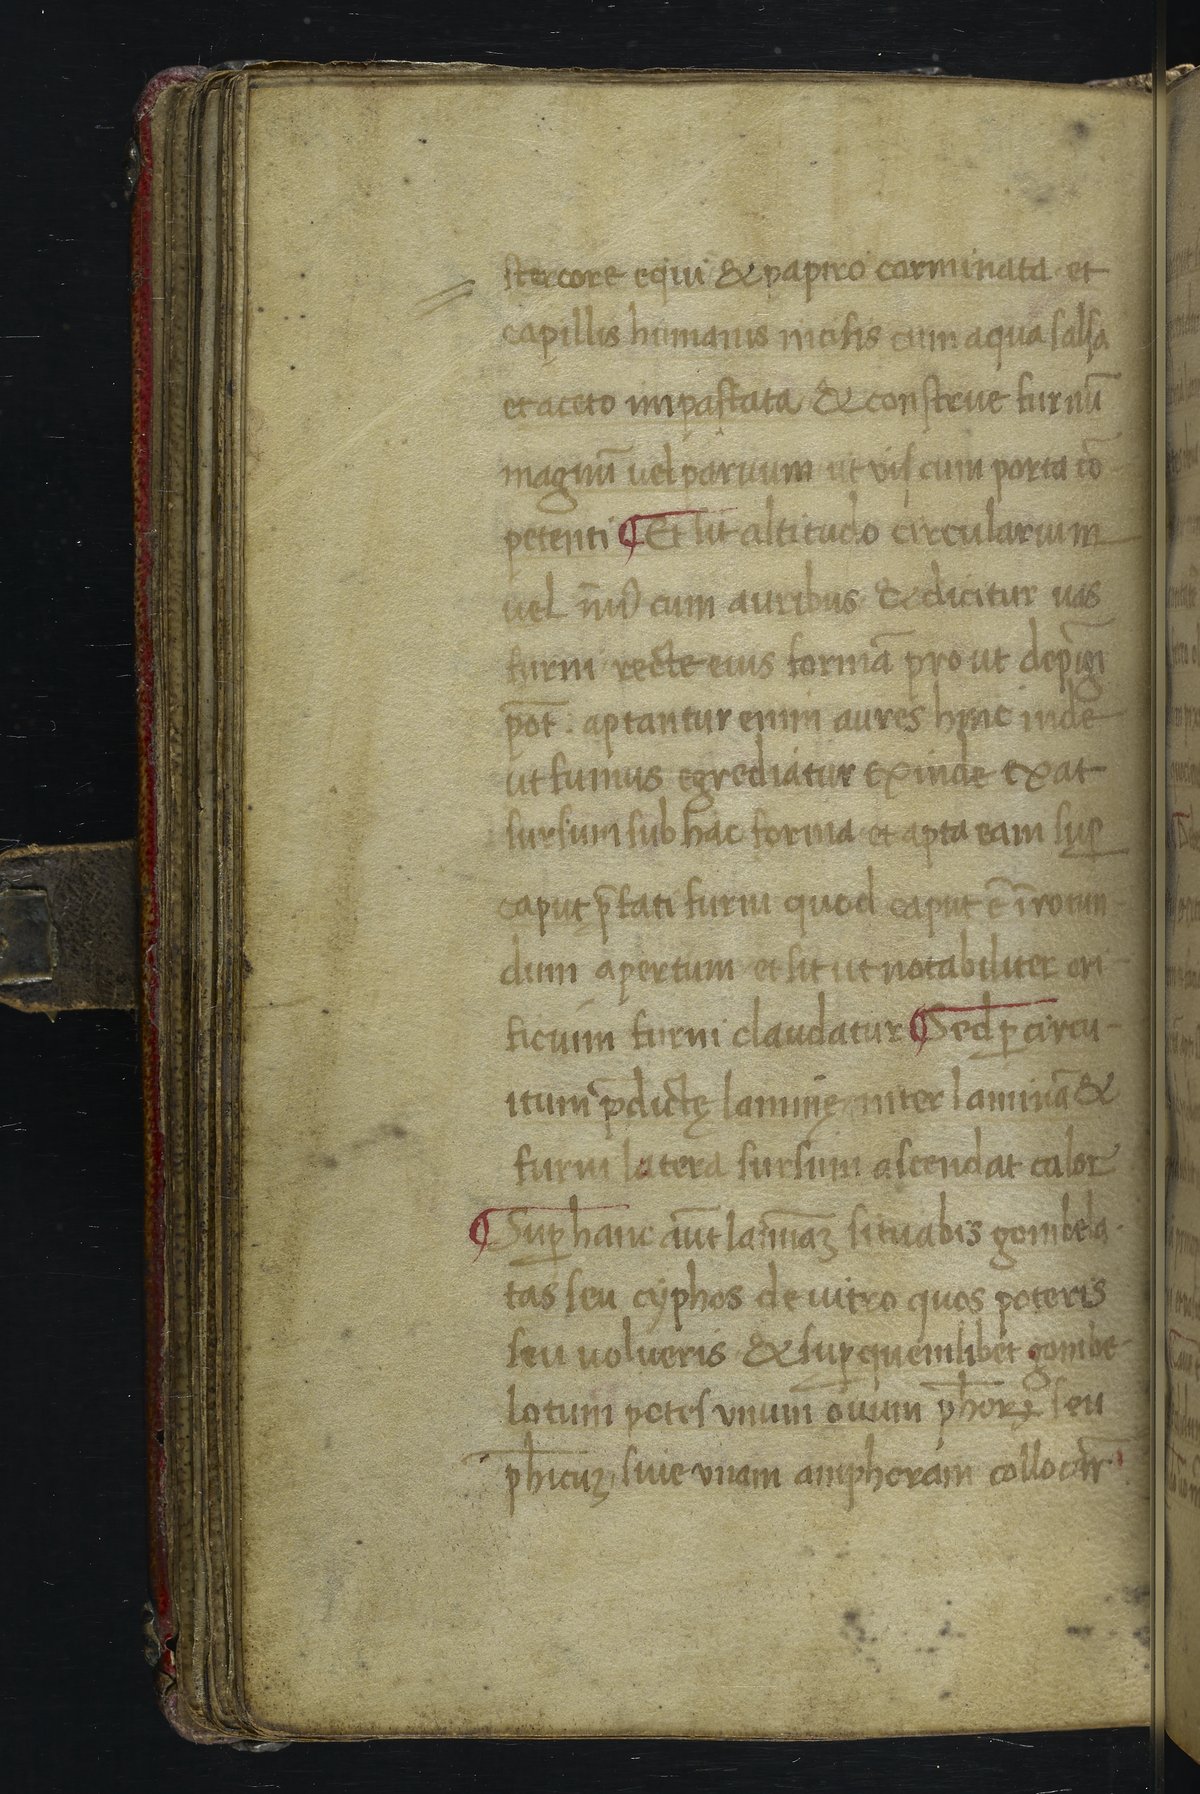 stercore equi & papiro carminata et
capillis humanis incisis cum aqua salsa
et aceto impastata & construe furnū
magnū vel parvum ut vis cum porta cō
petenti ¶ Et sit altitudo circularium
vel cum auribus & dicitur vas
furni recte eius formā pro ut depīgi
pōt: aptantur enim aures hinc inde
ut fumus egrediatur exinde exat
sursum sub hac forma et apta eam sup̱
caput p̄fati furni quod caput ē ī rotun-
dum apertum et sit ut notabiliter ori-
ficium furni claudatur ¶ Sed p̱ circu-
itum p̄dictę laminę inter laminā &
furni latera sursum ascendat calor
¶ Sup̱ hanc aūt lamināꝫ situabis gombela-
tas seu cyphos de vitro quos poteris
seu volueris & sup̱ quemlibet gombe-
lotum potes vnum ovum ph̄orꝝ seu
ph̄icuꝫ sive vnam amphoram collocar̄